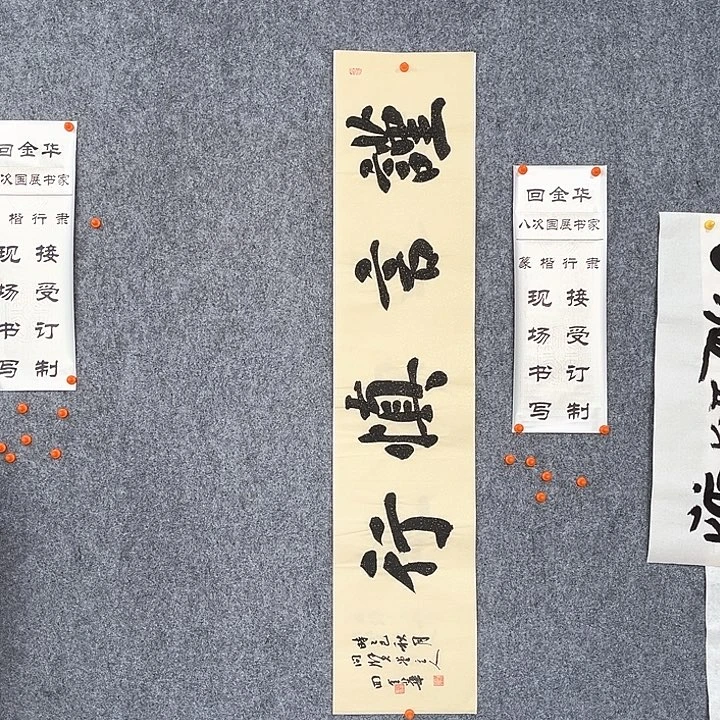 回金华
次国展书家
楷行隶
现场书写
接受订制
谨言慎行
回金华
八次国展书家
篆楷行隶
现场书写
接受订制